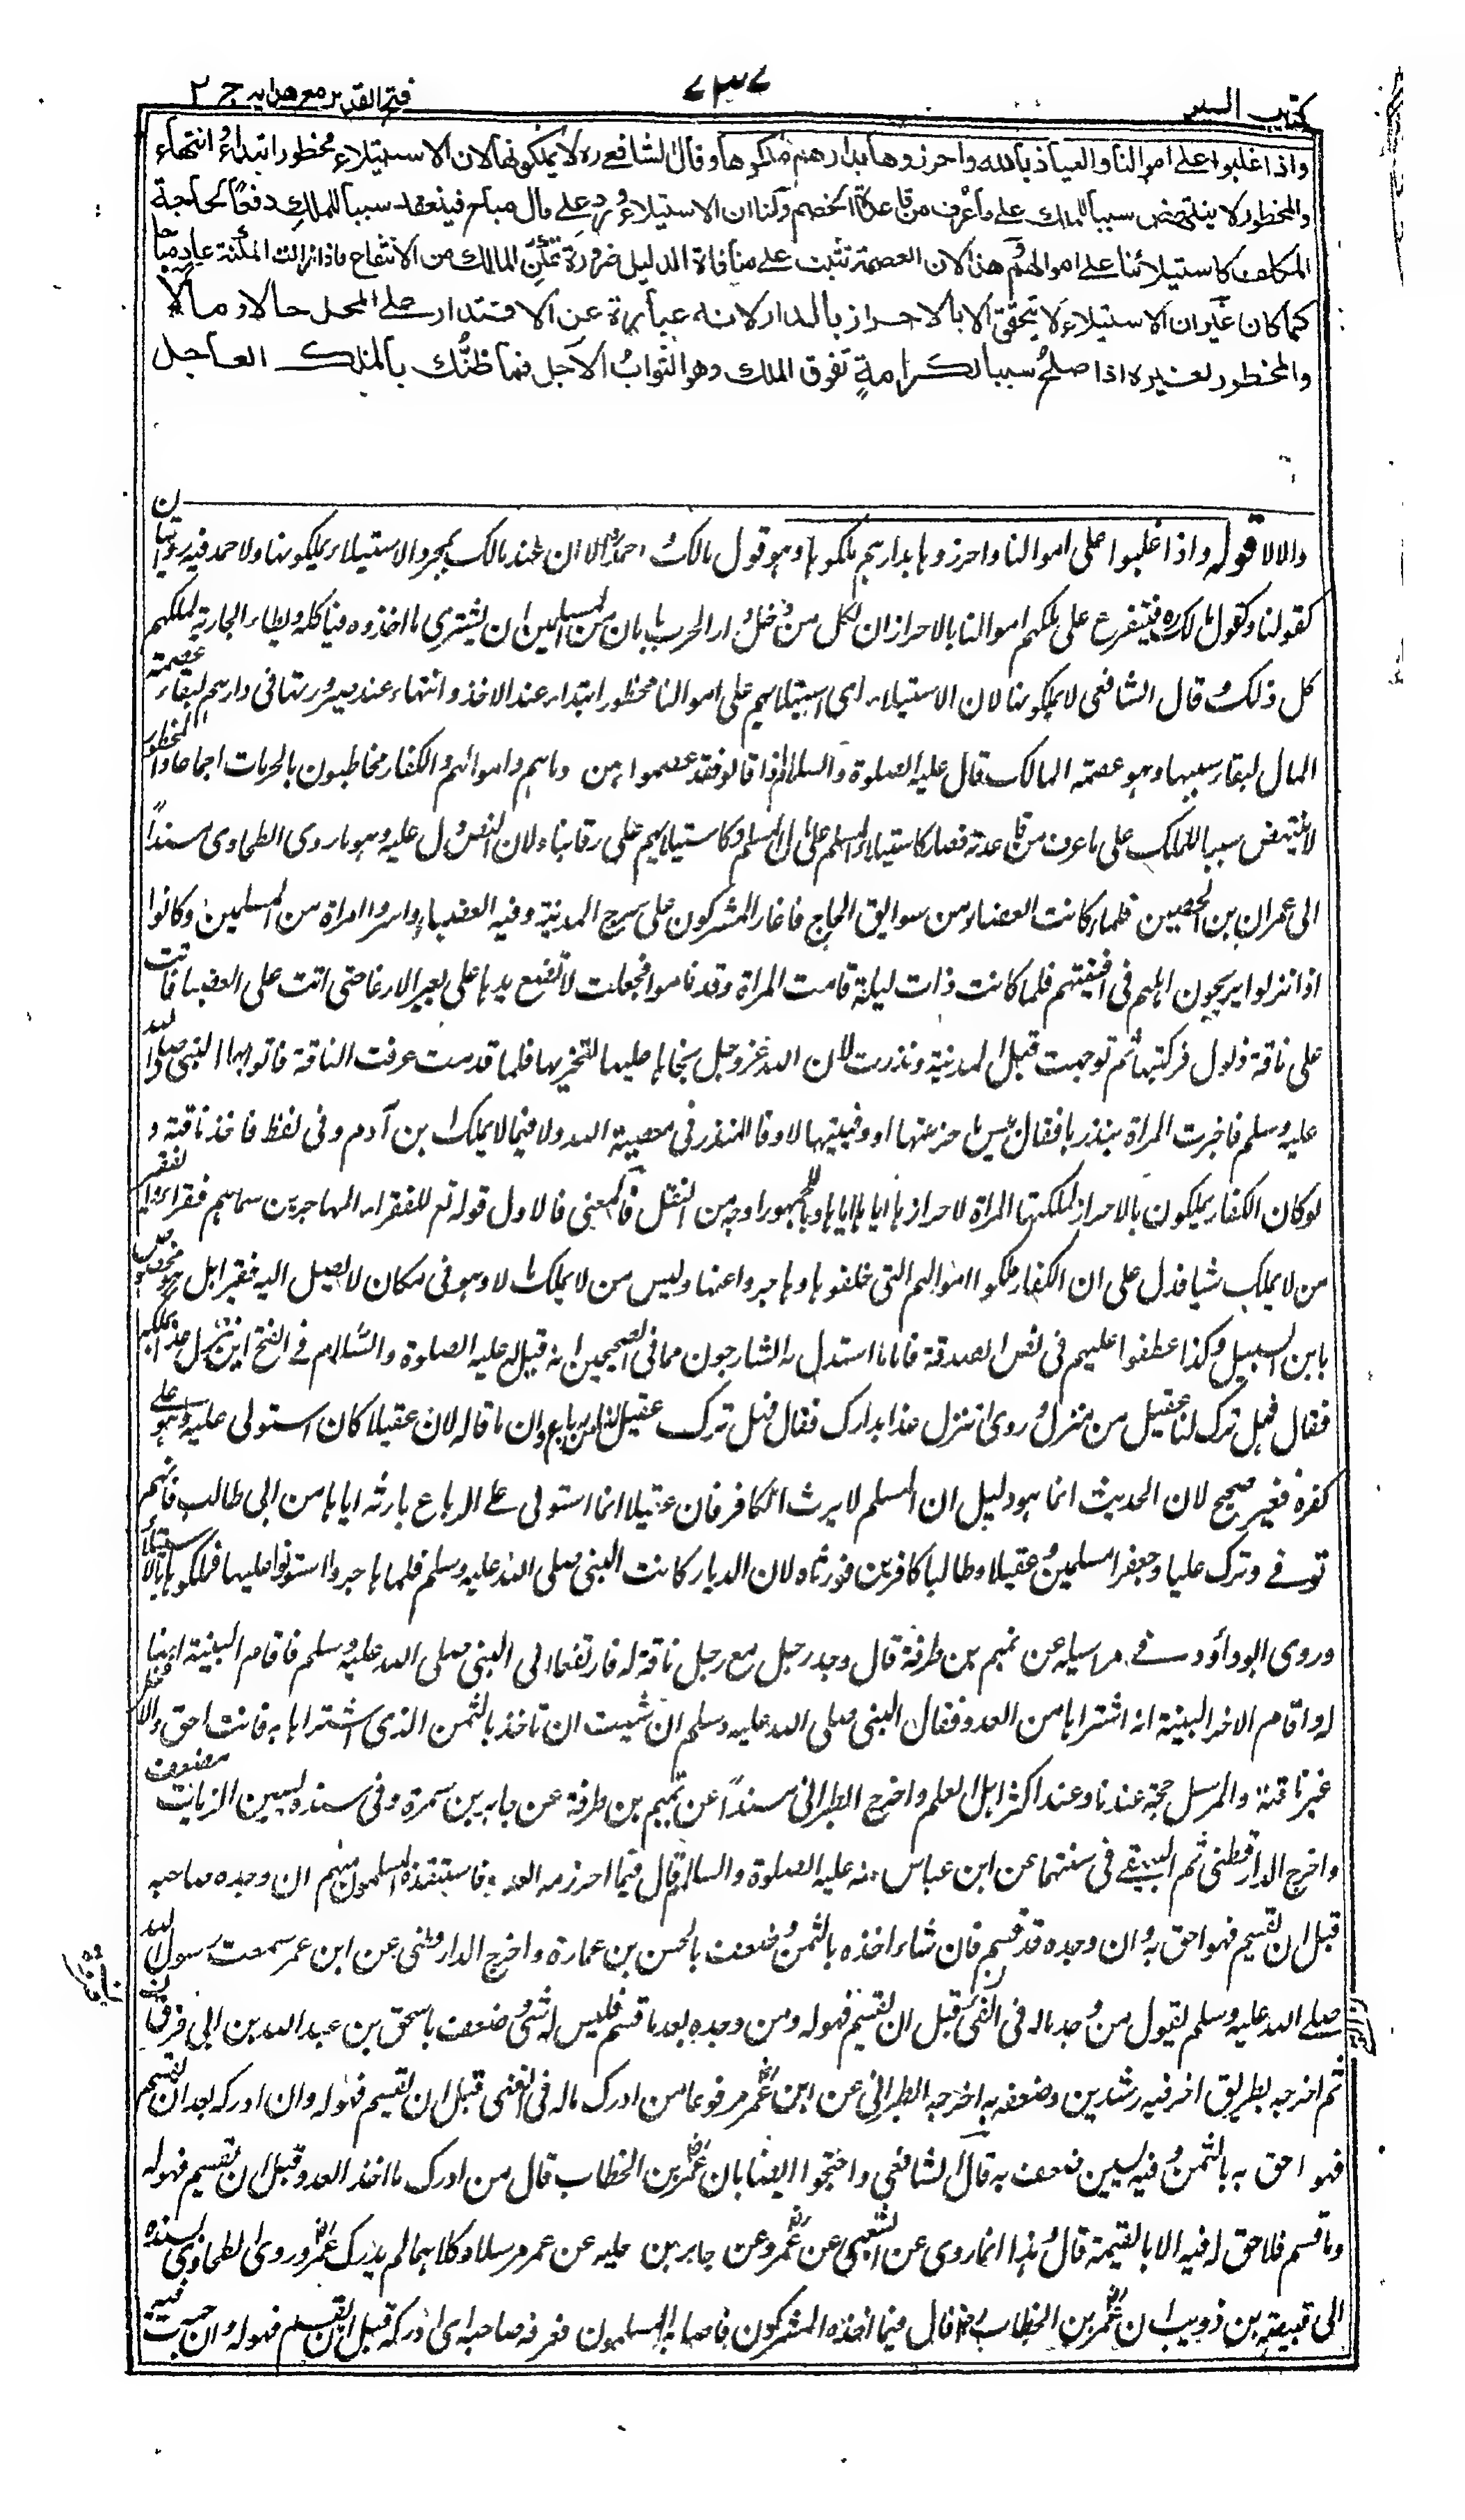 كتاب السير
٧٣٧
فتح القدير مع هدايه ج ٢
واذا غلبوا على اموالنا والعياذ بالله واحرزوها بدارهم ملكوها وقال الشافعي ره لا يملكونها لان الاستيلاء محظور ابتداءً وانتهاء
والمحظور لا ينتهض سببا للملك على ما عرف من قاعدة الخصم ولنا ان الاستيلاء ورد على مال مباح فينعقد سببا للملك دفعًا لحاجة
المكلف كاستيلائنا على اموالهم وهذا لان العصمة تثبت على منافاة الدليل ضرورة تمكن المالك من الانتفاع فاذا زالت المكنة عاد مباحا
كما كان غير ان الاستيلاء لا يتحقق الا بالاحراز بالدار لانه عبارة عن الاقتدار على المحل حالا ومالا
والمحظور لغيره اذا صلح سببا لكرامةٍ تفوق الملك وهو الثوابُ الآجل فما ظنُّك بالملك العاجل
والا لا قوله واذا غلبوا على اموالنا واحرزوها بدارهم ملكوها وهو قول مالك واحمد الا ان عند مالك بمجرد الاستيلاء يملكونها ولاحمد فيه روايتان
كقولنا وكقول مالك ره فيتفرع على ملكهم اموالنا بالاحراز ان لكل من دخل دار الحرب بامان من المسلمين ان يشترى ما اخذوه فياكله ويطاء الجارية لملكهم
كل ذلك وقال الشافعى لا يملكونها لان الاستيلاء اى استيلاءهم على اموالنا محظور ابتداء عند الاخذ وانتهاء عند صيرورتها فى دارهم لبقاء عصمته
المال لبقاء سببها وهو عصمة المالك قال عليه الصلوة والسلام فاذا قالوا فقد عصموا منى دماءهم واموالهم والكفار مخاطبون بالحرمات اجماعا والمحظور
لا ينتهض سببا للملك على ما عرف من قاعدته فصار كاستيلاء المسلم على مال المسلم وكاستيلائهم على رقابنا ولان النص دل عليه وهو ما روى الطحاوى مسنداً
الى عمران بن الحصين قال كانت العضباء من سوابق الحاج فاغار المشركون على سرح المدينة وفيه العضباء واسروا امراة من المسلمين وكانوا
اذا نزلوا يريحون ابلهم فى افنيتهم فلما كانت ذات ليلة قامت المراة وقد ناموا فجعلت لا تضع يدها على بعير الا رغا حتى اتت على العضباء فاتت
على ناقة ذلول فركبتها ثم توجهت قبل المدينة ونذرت لان الله عز وجل نجاها عليها لتنحرنها فلما قدمت عرفت الناقة فاتوا بها النبى صلى الله
عليه وسلم فاخبرت المراة بنذرها فقال بئس ما جزيتها او وفيتيها لا وفاء لنذر فى معصية الله ولا فيما لا يملك ابن آدم وفى لفظ فاخذ ناقته و
لو كان الكفار يملكون بالاحراز لملكتها المراة لاحرازها اياها وللجمهور اوجه من النقل والمعنى فالاول قوله تع للفقراء المهاجرين سماهم فقراء والفقير
من لا يملك شيا فدل على ان الكفار ملكوا اموالهم التى خلفوها وهاجروا عنها وليس من لا يملك مالا وهو فى مكان لا يصل اليه فقيرا بل هو مخصوص
بابن السبيل وكذا عطفوا عليهم فى نص الصدقة فاما ما استدل به الشارحون مما فى الصحيحين انه قيل له عليه الصلوة والسلام فى الفتح اين تنزل غدا بمكة
فقال وهل ترك لنا عقيل من منزل وروى اتنزل غدا بدارك فقال وهل ترك عقيل لنا من رباع وان ما قاله لان عقيلا كان استولى عليه وهو على
كفره فغير صحيح لان الحديث انما هو دليل ان المسلم لا يرث الكافر فان عقيلا انما استولى على الرباع بارثه اياها من ابى طالب فانهم
توفى وترك عليا وجعفرا مسلمين وعقيلا وطالبا كافرين فورثاه لان الديار كانت للنبى صلى الله عليه وسلم فلما هاجر استولوا عليها فملكوها بالاستيلاء
وروى ابو داؤد فى مراسيله عن تميم بن طرفة قال وجد رجل مع رجل ناقة له فارتفعا الى النبى صلى الله عليه وسلم فاقام البينة انها
له واقام الاخر البينة انه اشتراها من العدو فقال النبى صلى الله عليه وسلم ان شئت ان تاخذ بالثمن الذى اشتراها به فانت احق والا فخل
عن ناقته والمرسل حجة عندنا وعند اكثر اهل العلم واخرج الطبرانى مسنداً عن تميم بن طرفة عن جابر بن سمرة وفى سنده يسين الزيات مضعف
واخرج الدارقطنى ثم البيهقى فى سننهما عن ابن عباس عنه عليه الصلوة والسلام قال فيما احرزه العدو فاستنقذه المسلمون منهم ان وجده صاحبه
قبل ان يقسم فهو احق به وان وجده قد قسم فان شاء اخذه بالثمن وضعف بالحسن بن عمارة واخرج الدارقطنى عن ابن عمر سمعت رسول الله
صلى الله عليه وسلم يقول من وجد ماله فى الفئ قبل ان يقسم فهو له ومن وجده بعد ما قسم فليس له شئ وضعف باسحق بن عبد الله بن ابى فروة
ثم اخرجه بطريق اخر فيه رشدين وضعفه به اخرجه الطبرانى عن ابن عمر مرفوعا من ادرك ماله فى الفئ قبل ان يقسم فهو له وان ادركه بعد ان يقسم
فهو احق به بالثمن وفيه يسين ضعف به قال الشافعى واحتجوا ايضا بان عمر بن الخطاب قال من ادرك ما اخذ العدو قبل ان يقسم فهو له
وما قسم فلا حق له فيه الا بالقيمة قال وهذا انما روى عن الشعبى عن عمر وعن جابر بن حليه عن عمر مرسلا وكلاهما لم يدرك عمر وروى الطحاوى بسنده
الى قبيصة بن ذويب ان عمر بن الخطاب رض قال فيما اخذه المشركون فاصابه المسلمون فعرفه صاحبه اى ادركه قبل ان يقسم فهو له وان جرت فيه